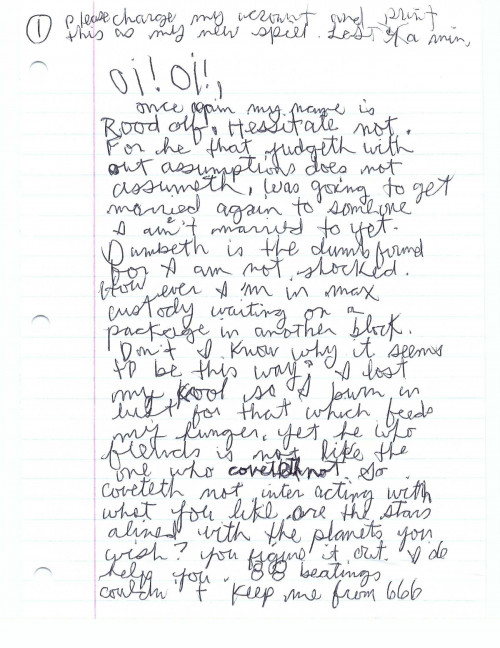 ① Please charge my account and print
this as my new spiel. Less a min,
Oi! Oi!,
once again my name is
Rood off. Hessitate not.
For he that judgeth with
out assumptions does not
assumeth, was going to get
married again to someone
I ain't married to yet.
Dumbeth is the dumbfound
for I am not shocked.
How ever I'm in max
custody waiting on a
package in another block.
Don't I know why it seems
to be this way? I lost
my kool so I burn in
lust for that which feeds
my hunger, yet he who
fiends is not like the
one who coveteth not. So
coveteth not inter acting with
what you like are the stars
alined with the planets you
wish? you figure it out. I do
help you. 88 beatings
couldn't keep me from 666